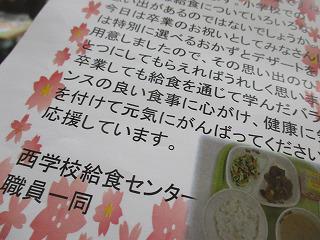 小学校での
給食についていろいろな
い出があるのではないでしょうか
今日は卒業のお祝いとしてみなさ
は特別に選べるおかずとデザートを
用意しましたので、その思い出のひ
とつにしてもらえればうれしく思いま
卒業しても給食を通じて学んだバラ
ンスの良い食事に心がけ、健康に気
を付けて元気にがんばってください
応援しています。
西学校給食センター
職員一同